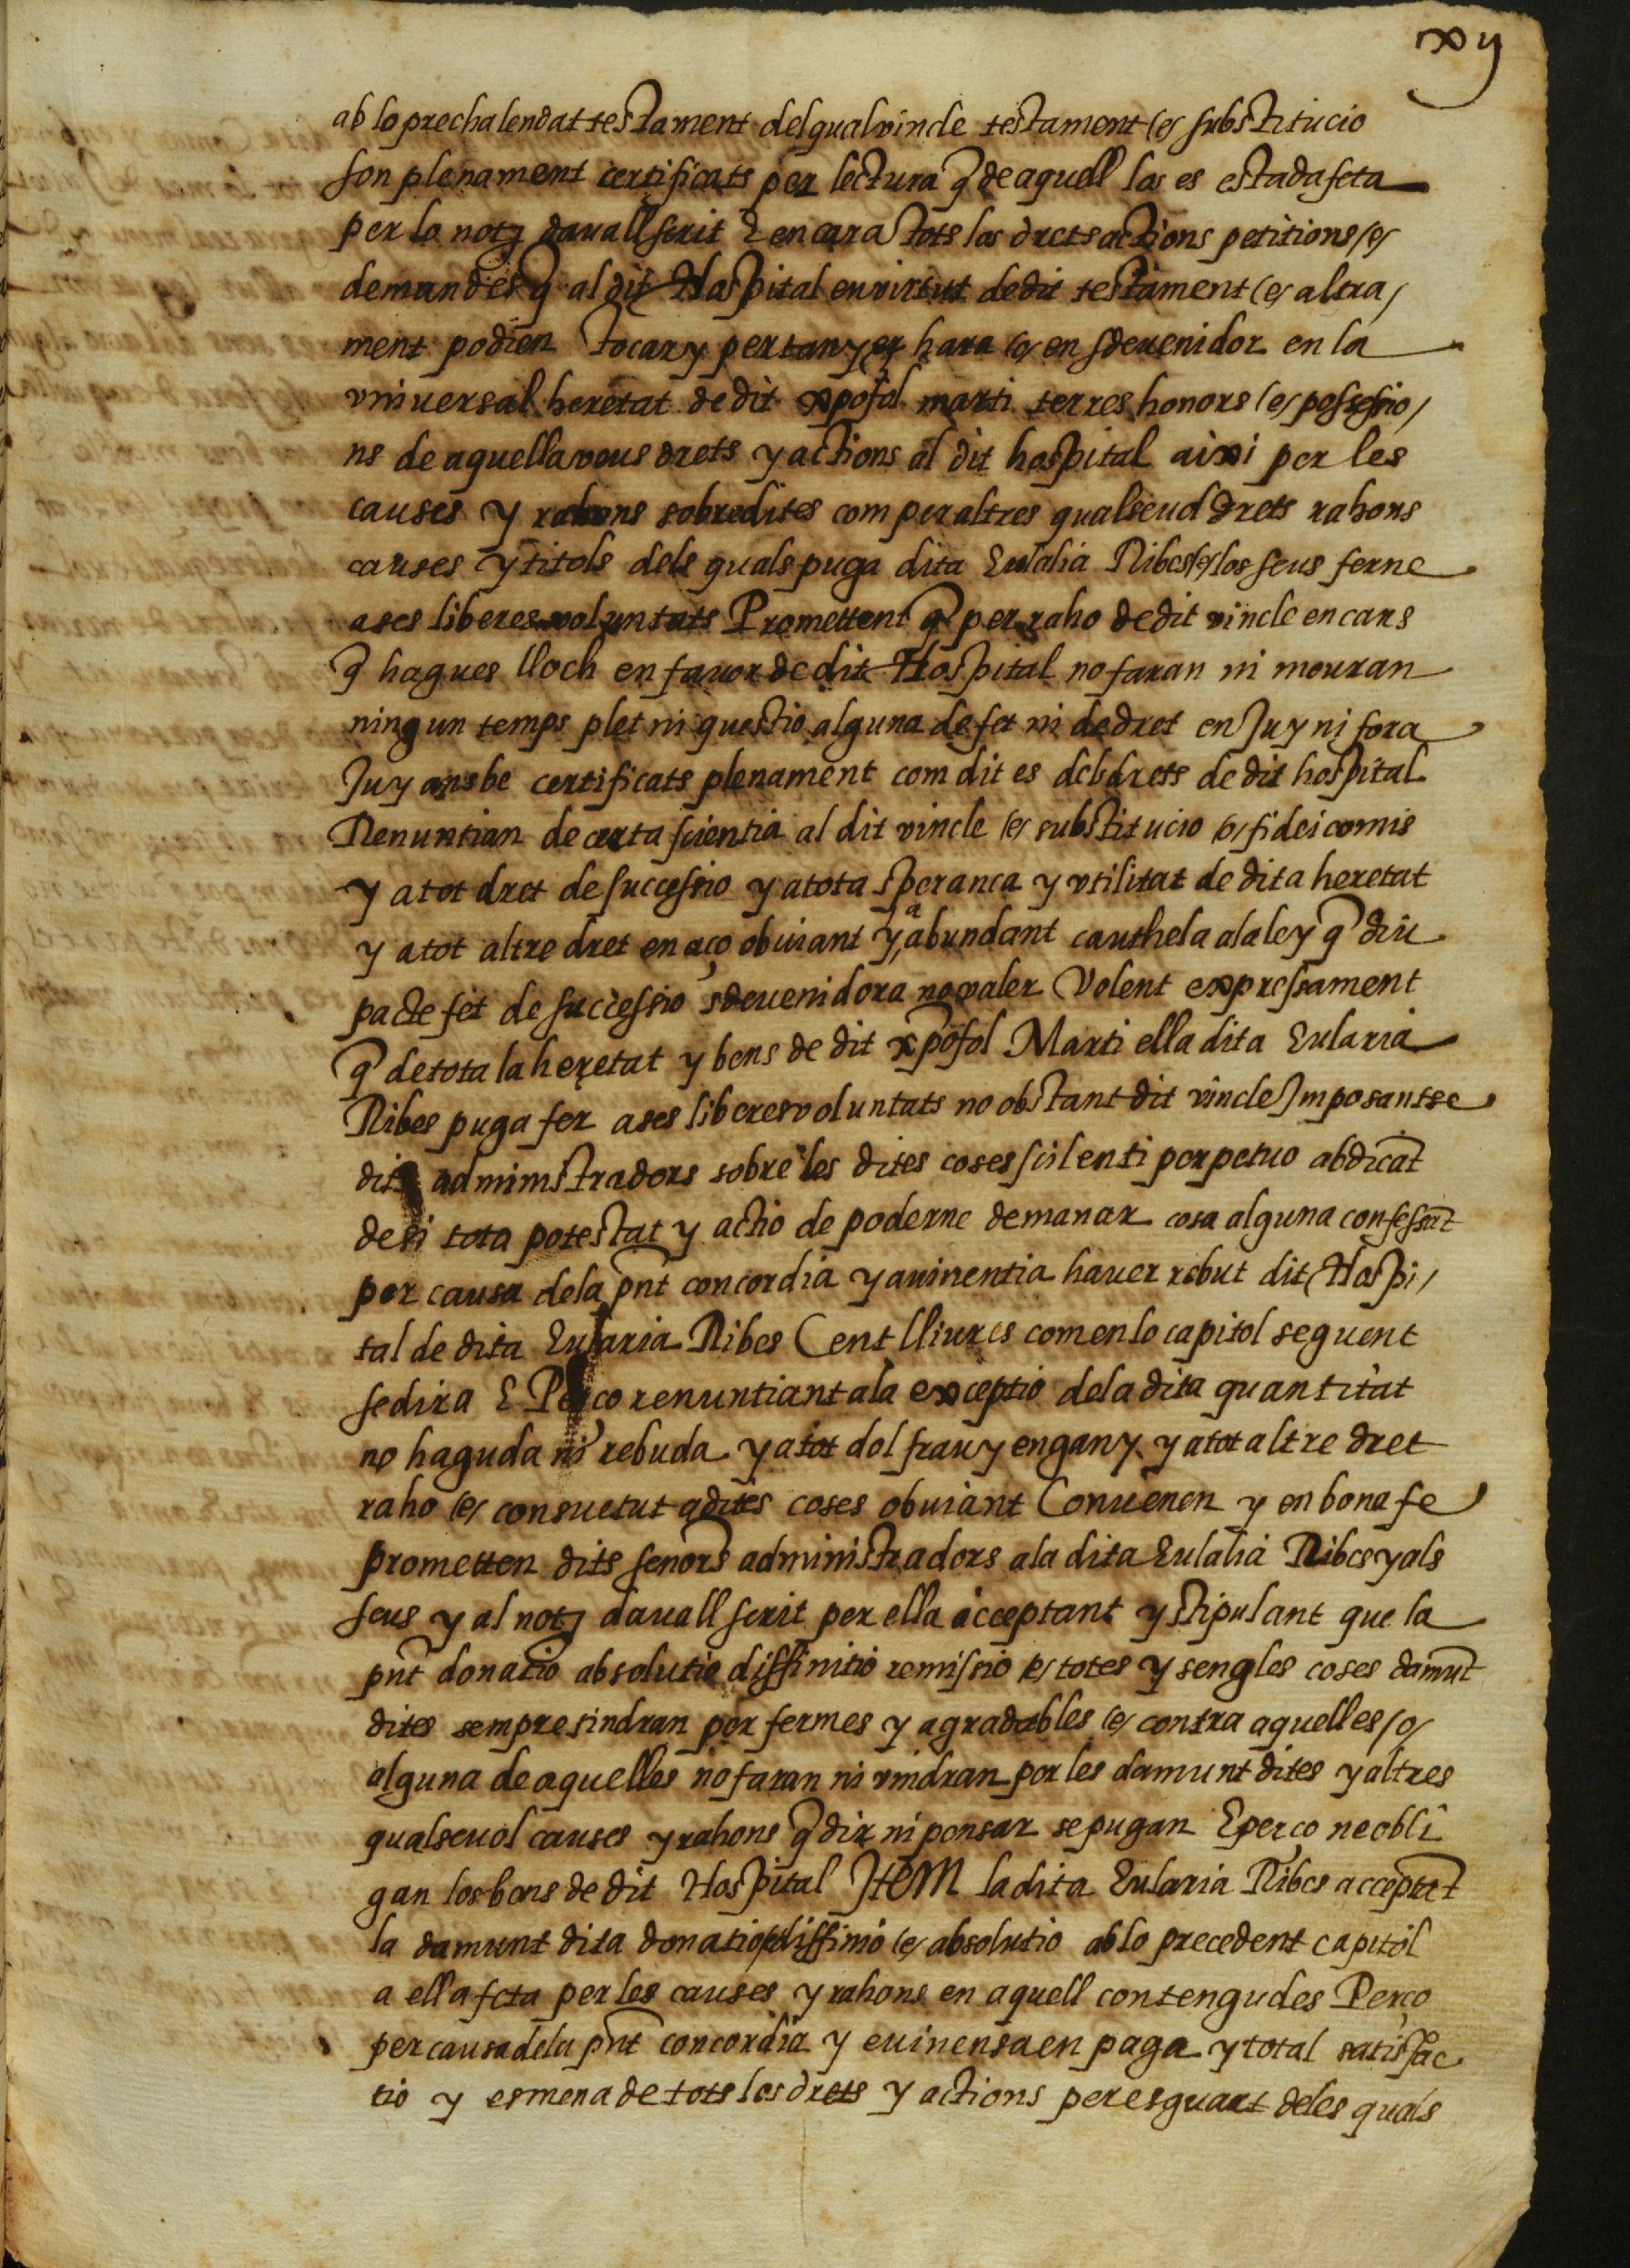 xij
ab lo prechalendat testament del qual vincle testament (e) substitucio
son plenament certificats per lectura q̃ de aquell los es estada feta
per lo notj davall scrit E encara tots los drets actions petitions (e)
demandes q̃ al dit Hospital en virtut de dit testament (e) altra/
ment podien tocar y pertanyer hara (e) en sdevenidor en la
vniuersal heretat de dit xp̃ofol marti terres honors (e) possessio/
ns de aquella veus drets y actions al dit hospital aixi per les
causes y rahons sobredites com per altres qualseuol drets rahons
causes y titols dels quals puga dita Eulalia Ribes (e) los seus ferne
a ses liberes voluntats Promettent q̃ per raho de dit vincle encars
q̃ hagues lloch en fauor de dit Hospital no faran ni mouran
ningun temps plet ni questio alguna de fet ni de dret en Juy ni fora
Juy ans be certificats plenament com dit es dels drets de dit hospital
Renuntian de certa scientia al dit vincle (e) substitucio (e) fideicomis
y a tot dret de successio y a tota speranca y vtilitat de dita heretat
y a tot altre dret en aço obuiant y a abundant cauthela a la ley q̃ diu
pacte fet de successio sdeuenidora no valer Volent expressament
q̃ de tota la heretat y bens de dit xp̃ofol Marti ella dita Eularia
Ribes puga fer a ses liberes voluntats no obstant dit vincle Imposantse
dits administradors sobre les dites coses silenti perpetuo abdicāt
de si tota potestat y actio de poderne demanar cosa alguna confessāt
per causa de la pn̄t concordia y auinentia hauer rebut dit Hospi/
tal de dita Eularia Ribes Cent lliures com en lo capitol seguent
se dira E Perço renuntiant a la exceptio de la dita quantitat
no haguda ni rebuda y a tot dol frau y engany y a tot altre dret
raho (e) consuetut a dites coses obuiant Conuenen y en bona fe
prometten dits senors administradors a la dita Eulalia Ribes y als
seus y al notj dauall scrit per ella acceptant y stipulant que la
pn̄t donatio absolutio diffinitio remissio (e) totes y sengles coses damūt
dites sempre tindran per fermes y agradables (e) contra aquelles (o)
alguna de aquelles no faran ni vindran per les damunt dites y altres
qualseuol causes y rahons q̃ dir ni pensar se pugan E perço ne obli
gan los bens de dit Hospital ItEM la dita Eularia Ribes acceptāt
la damunt dita donatio diffinió (e) absolutio ab lo precedent capitol
a ella feta per les causes y rahons en aquell contengudes Perço
per causa de la pn̄t concordia y euinensa en paga y total satisfac
tio y esmena de tots los drets y actions per esguart de les quals